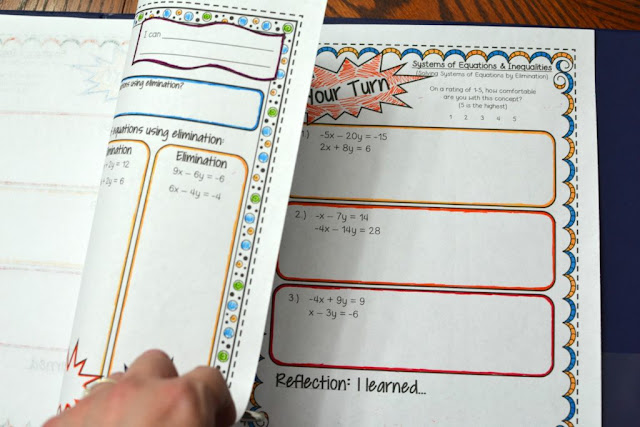 I can
using elimination?
equations using elimination:
= 12
+ 2y = 6
Elimination
9x – 6y = -6
6x – 4y = -4
Systems of Equations & Inequalities
(Solving Systems of Equations by Elimination)
Your Turn
On a rating of 1-5, how comfortable
are you with this concept?
(5 is the highest)
1 2 3 4 5
1.) -5x – 20y = -15
2x + 8y = 6
2.) -x – 7y = 14
-4x – 14y = 28
3.) -4x + 9y = 9
x – 3y = -6
Reflection: I learned...